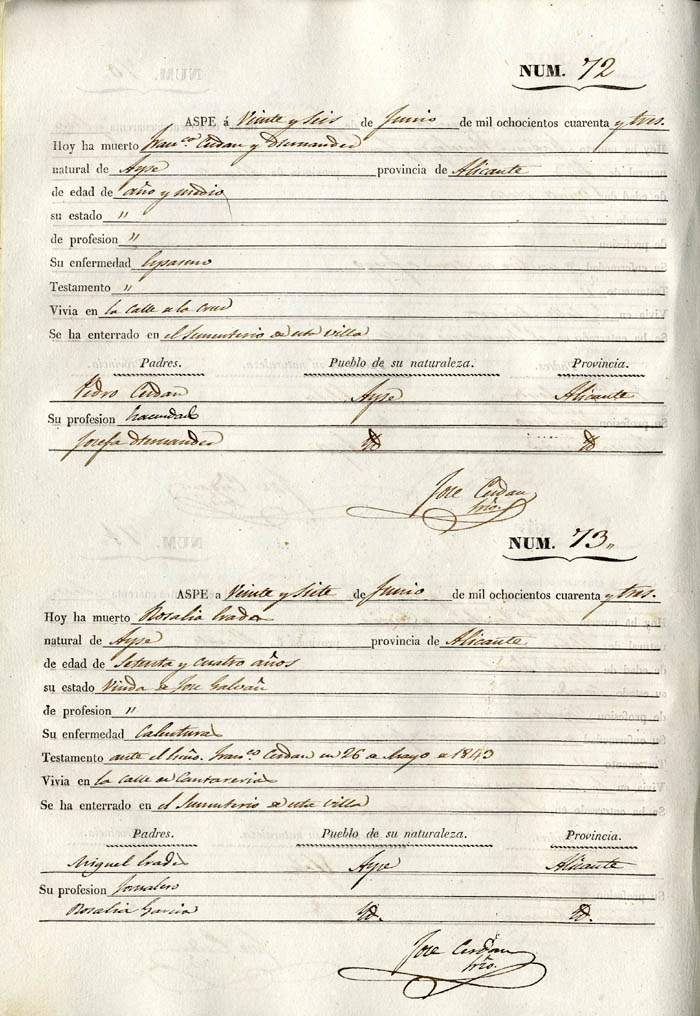 NUM. 72
ASPE á Veinte y Seis de Junio de mil ochocientos cuarenta y tres.
Hoy ha muerto Fran.co Cerdan y Hernandez
natural de Aspe provincia de Alicante
de edad de año y medio
su estado "
de profesion "
Su enfermedad espasmo
Testamento "
Vivia en la Calle de la Cruz
Se ha enterrado en el Sementerio de esta villa
Padres. Pueblo de su naturaleza. Provincia.
Pedro Cerdan Aspe Alicante
Su profesion hacendado
Josefa Hernandez Yd Yd
Jose Cerdan
Srio.
NUM. 73"
ASPE a Veinte y Siete de Junio de mil ochocientos cuarenta y tres.
Hoy ha muerto Rosalia
natural de Aspe provincia de Alicante
de edad de Setenta y cuatro años
su estado Viuda de Jose Galvañ
de profesion "
Su enfermedad Calentura
Testamento ante el Fran.co Cerdan en 26 de Mayo de 1843
Vivia en la calle de Cantareria
Se ha enterrado en el Sementerio de esta villa
Padres. Pueblo de su naturaleza. Provincia.
Miguel Aspe Alicante
Su profesion Jornalero
Rosalia Garcia Yd. Yd.
Jose Cerdan
Srio.